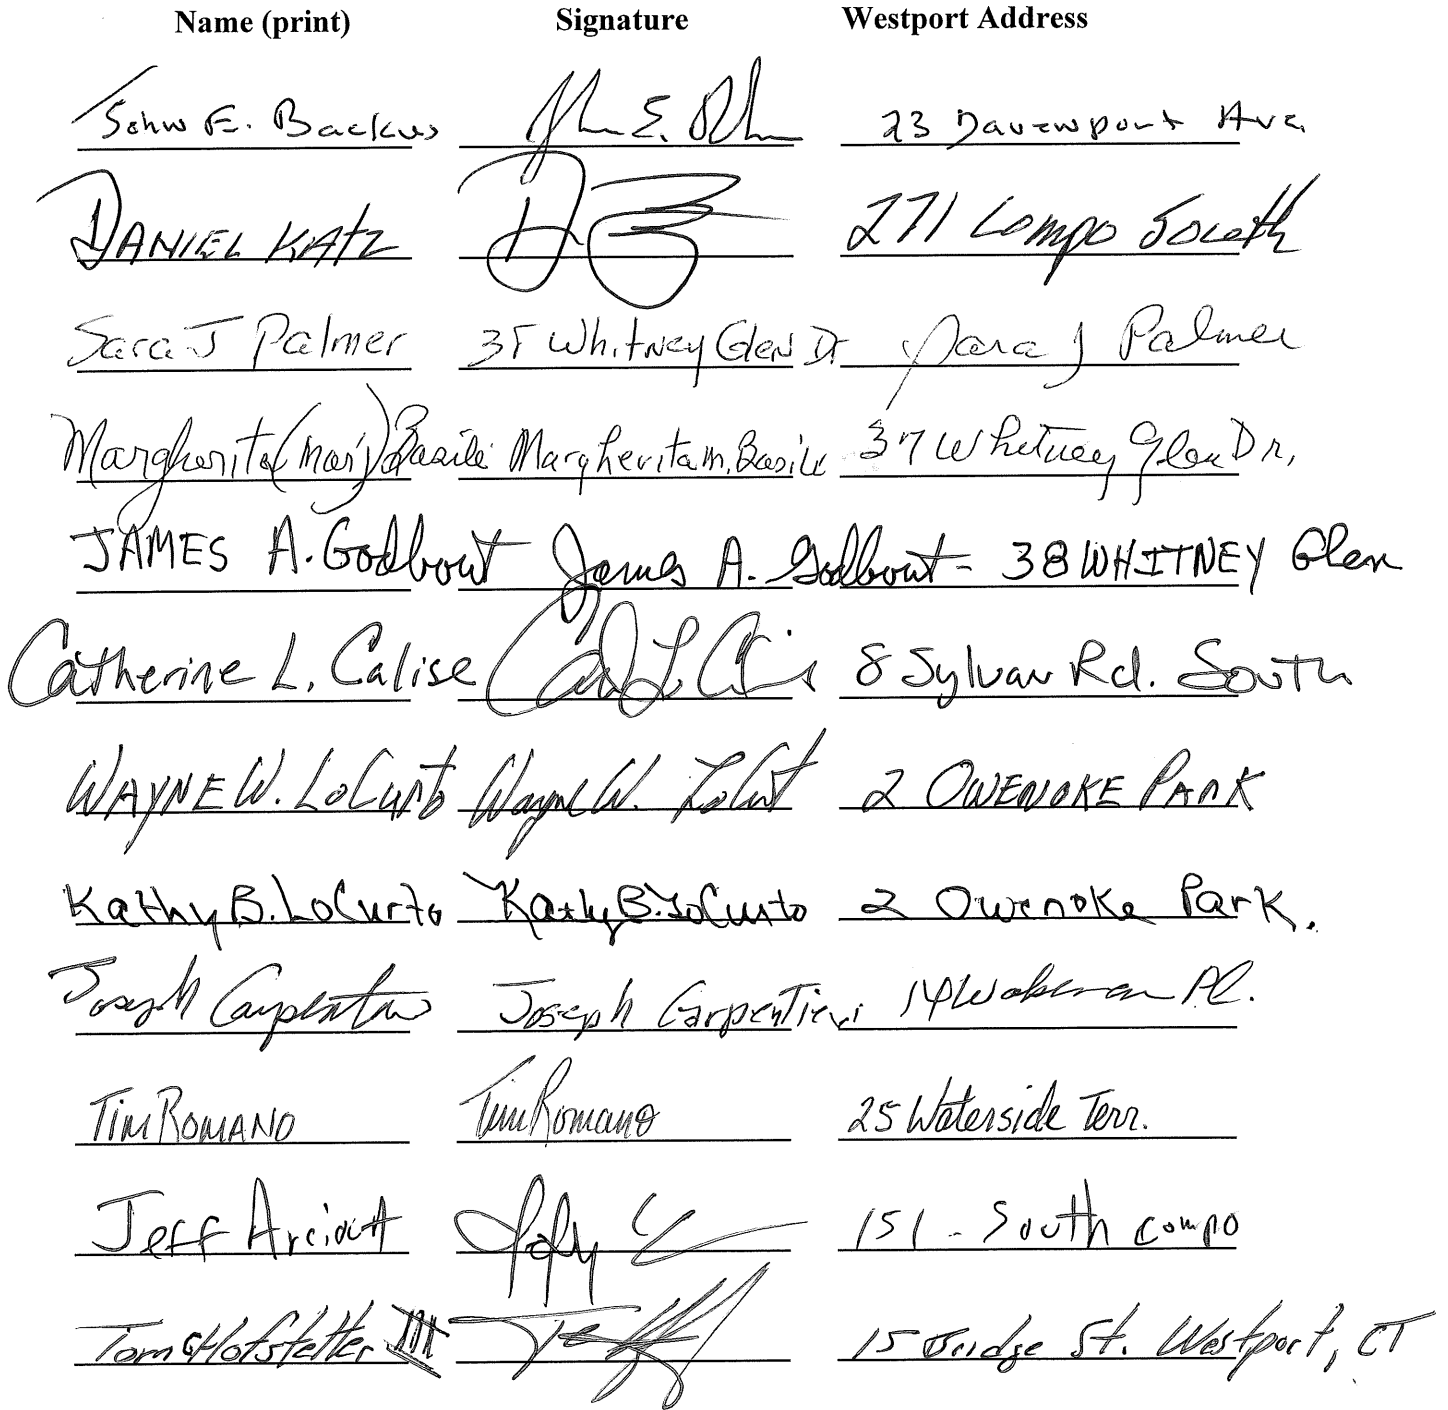 Name (print) Signature Westport Address
John E. Backus John E. 23 Davenport Ave.
DANIEL KATZ 271 Compo South
Sara J Palmer 35 Whitney Glen Dr Sara J Palmer
Margherita (Mari) Basile Margherita M. Basile 37 Whitney Glen Dr.
JAMES A. Godbout James A. Godbout - 38 WHITNEY Glen
Catherine L. Calise 8 Sylvan Rd. South
WAYNE W. LoCurto Wayne W. LoCurto 2 OWENOKE PARK
Kathy B. LoCurto Kathy B. LoCurto 2 Owenoke Park.
Joseph Carpentieri Joseph Carpentieri 14 Wakeman Pl.
TIM ROMANO Tim Romano 25 Waterside Terr.
Jeff Arciola 151 - South Compo
Tom G Hofstetter III 15 Bridge St. Westport, CT